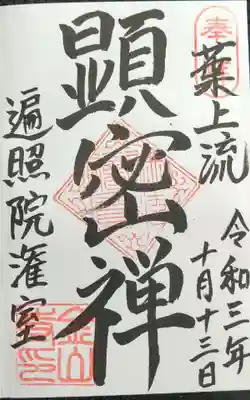 奉拝
葉上流
令和三年
十月十三日
顕密禅
遍照院灌室